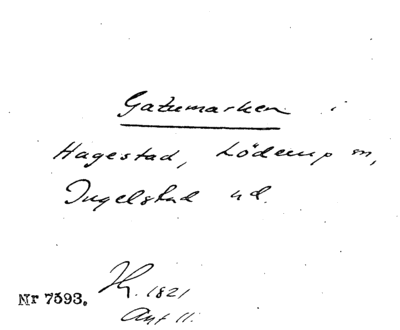 Gatumarken i
Hagestad, Löderup sn,
Ingelstad hd.
Nr 7593. 1821